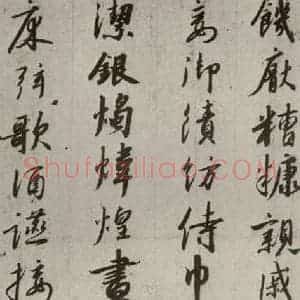 饑厭糟糠親戚
妾御績紡侍巾
潔銀燭煒煌晝
床弦歌酒讌接
ShufaZiliao.COM